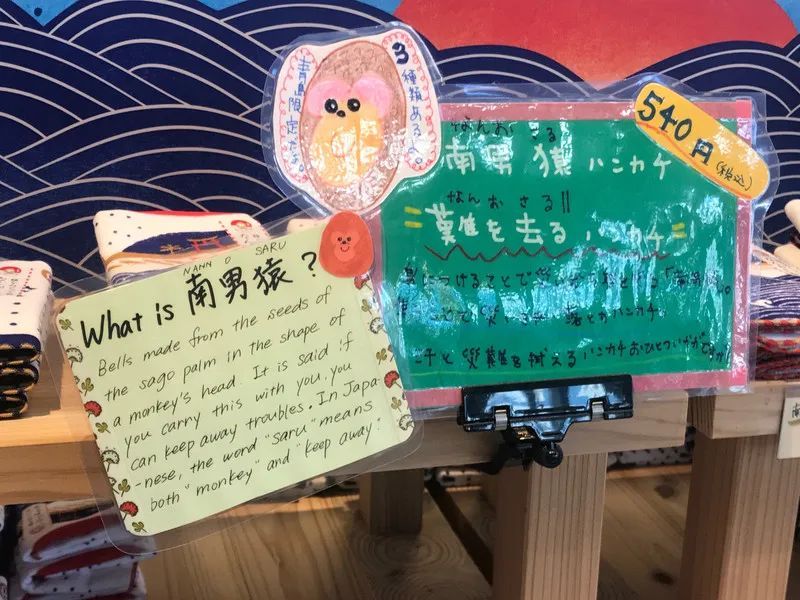 3種類あるよ。
青島限定だよ。
540円
(税込)
なんお さる
南男猿 ハンカチ
なんおさる
=難を去るハンカチ=
つけることで
ハンカチ。
災難を拭えるハンカチおひとついかがですか
NANN O SARU
What is 南男猿?
Bells made from the seeds of
the sago palm in the shape of
a monkey's head. It is said if
you carry this with you. you
can keep away troubles. In Japa-
-nese, the word "Saru" means
both "monkey" and "keep away."